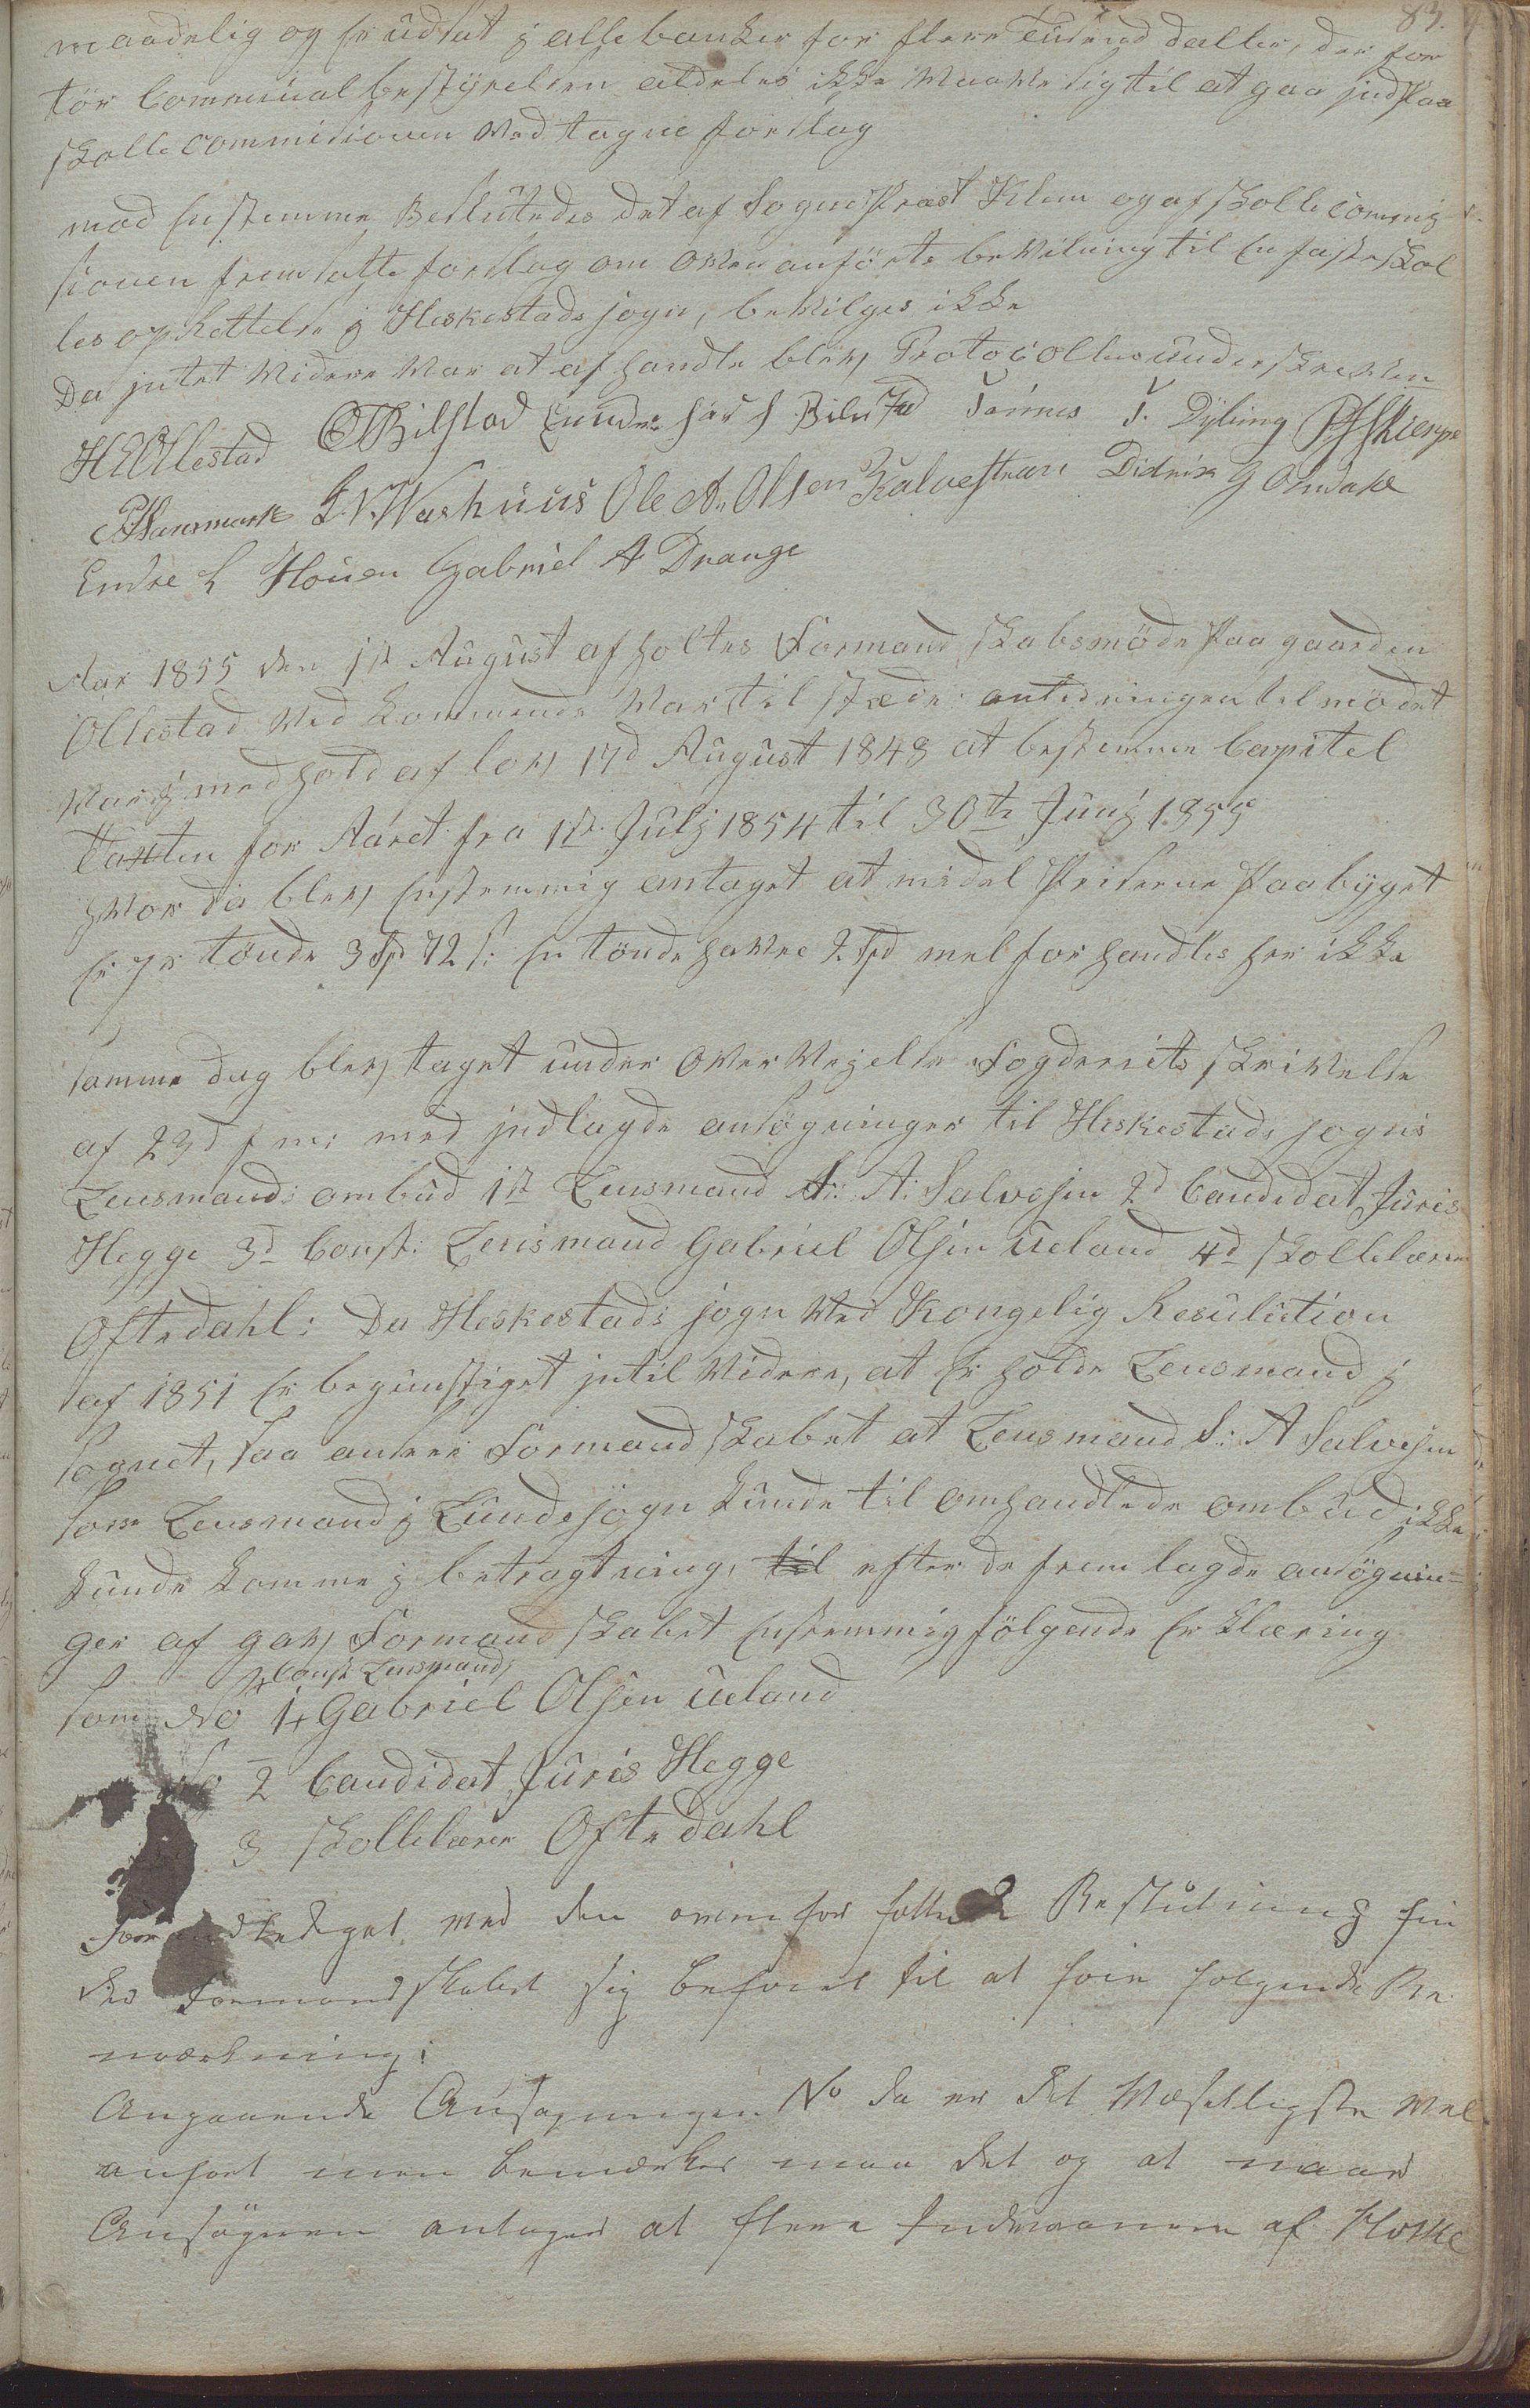 83.
maadelig og Er udsat i alle banker for flere Tusend daller, der for
tör Communal bestyrelsen aldeles ikke Vaave sig til at gaa jnd paa
skolle commisionen Ved tagne forslag
mod Enstemme Besluttedes det af Sogne Præst Klem og af skolle commi
sionen fremsatte forslag om Oven anförte beVilning til En faste skol
les oprettelse i Heskestads sogn, beVilges ikke
Da jntet Videre Var at afhandle blev Protocollen underskreven
H E Ollestad O T Bilstad Endre  S. Bilstad Tönnes T. Dybing P J Skierpe
 L. V. Vashuus Ole A. Olsen Kalvestran Didrik G Omdahl
Endre L Houen Gabriel A Drange
Aar 1855 den 1st August afholtes Formandskabsmöde paa gaarden
Ollestad Ved kommende Var til stæde. anledningen til mödet
Var i medhold af lov 17d August 1848 at bestemme Capitel
Taxten for Aaret fra 1st Julj 1854 til 30te Junj 1855
hVor da blev Enstemmig antaget at midel Priserne paa byget
Er pr tönde 3 Spd 72 s: En tönde haVre 2 Spd mel forhandles her ikke
samme dag blev taget under OverVejelse Fogderiets skriVelse
af 23d f m: med jndlagde ansögninger til Heskestads sogns
Lensmands ombud 1st Lensmand S: A: Salvesen 2d Candidat Juris
Hegge 3d Const: Lensmand Gabriel Olsen Ueland 4d skollelærer
Oftedahl: Da Heskestads sogn Ved Kongelig Resulution
af 1851 Er begunstiget jntil Videre, at Er holde Lensmand i
sognet, saa anseer Formandskabet at Lensmand S: A Salvesen
som Lensmand i Lunde sogn kunde til omhandlede ombud ikke
kunde komme i betragtning, til efter de frem lagde ansögnin=
ger af gav Formandskabet Enstemmig fölgende Erklæring
Const Lensmand
som No 1 Gabriel Olsen Ueland
No 2 Candidat Juris Hegge
3 skollelærer Oftedahl
 med den ovenfor fattede Beslutning fin
des Formandskabet sig beføiet til at føie følgende Be
mærkning:
Angaaende Ansøgningen No da er det Væsetligste vel
anført men bemærkes maa det og at naar
Ansögeren antager at flere Indvaanere af Heske